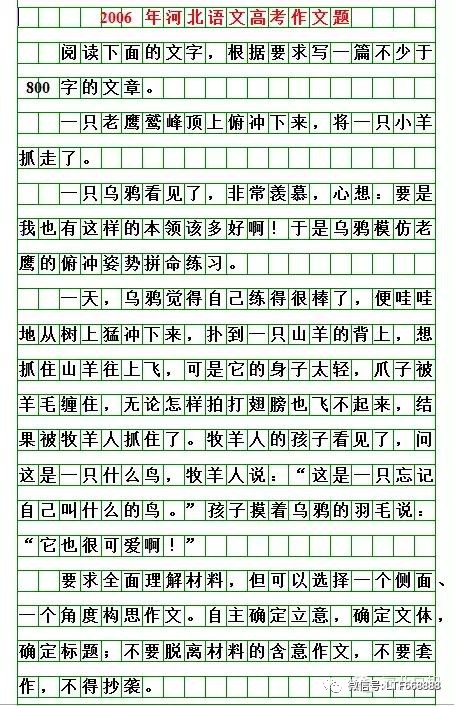 2006 年河北语文高考作文题
阅读下面的文字，根据要求写一篇不少于
800 字的文章。
一只老鹰鹫峰顶上俯冲下来，将一只小羊
抓走了。
一只乌鸦看见了，非常羡慕，心想：要是
我也有这样的本领该多好啊！于是乌鸦模仿老
鹰的俯冲姿势拼命练习。
一天，乌鸦觉得自己练得很棒了，便哇哇
地从树上猛冲下来，扑到一只山羊的背上，想
抓住山羊往上飞，可是它的身子太轻，爪子被
羊毛缠住，无论怎样拍打翅膀也飞不起来，结
果被牧羊人抓住了。牧羊人的孩子看见了，问
这是一只什么鸟，牧羊人说：“这是一只忘记
自己叫什么的鸟。”孩子摸着乌鸦的羽毛说：
“它也很可爱啊！”
要求全面理解材料，但可以选择一个侧面、
一个角度构思作文。自主确定立意，确定文体，
确定标题；不要脱离材料的含意作文，不要套
作，不得抄袭。
微信号: LTF668888